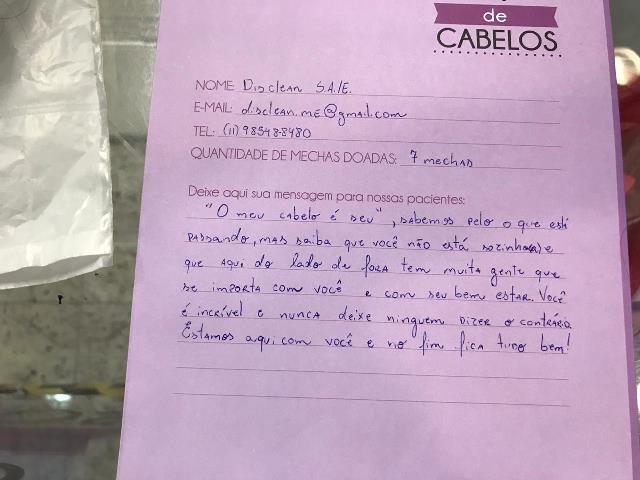 de
CABELOS
NOME: Disclean S.A/E.
E-MAIL: disclean.me@gmail.com
TEL: (11) 98548-8480
QUANTIDADE DE MECHAS DOADAS: 7 mechas
Deixe aqui sua mensagem para nossas pacientes:
"O meu cabelo é seu", sabemos pelo o que está
passando, mas saiba que você não está sozinha(a) e
que aqui do lado de fora tem muita gente que
se importa com você e com seu bem estar. Você
é incrível e nunca deixe ninguem dizer o contrário.
Estamos aqui com você e no fim fica tudo bem!